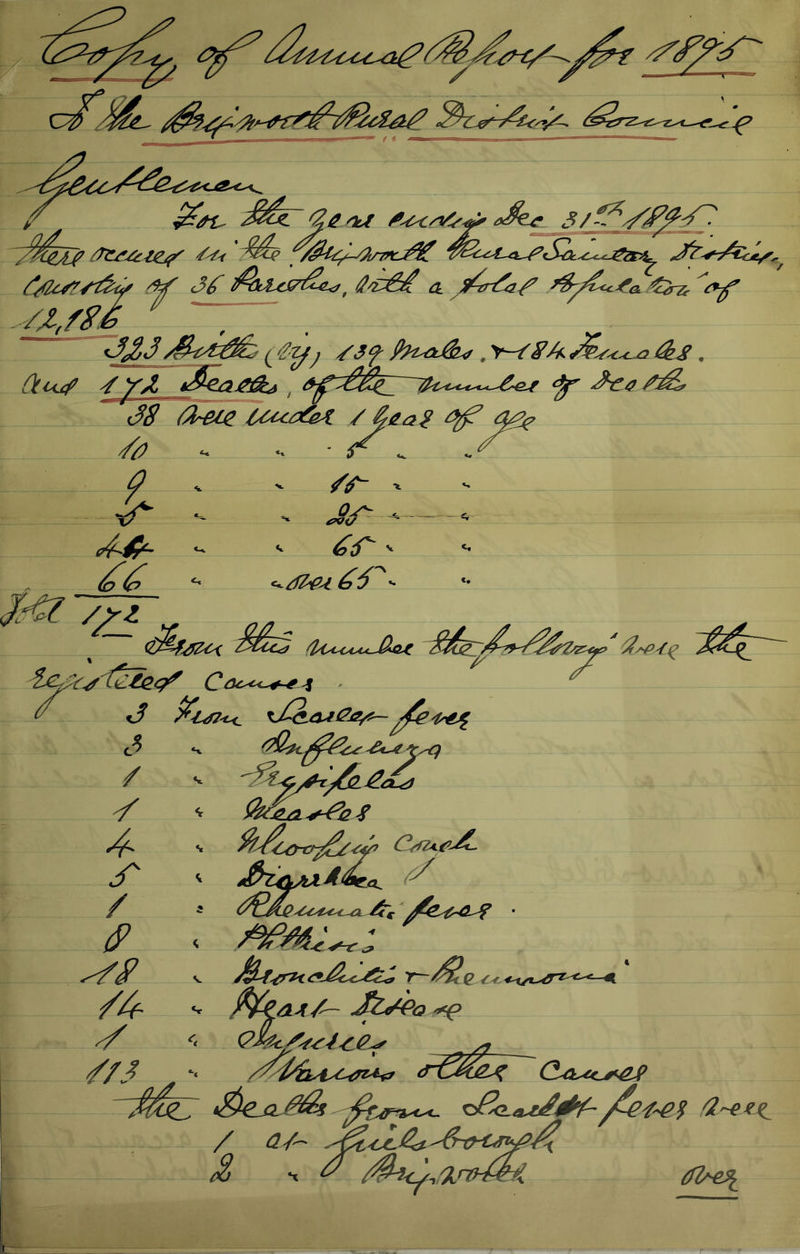 Copy of Annual Report for 1895
of the Brixworth Rural District Council
Gentlemen
For the Year ending Dec 31st 1895.
There occurred in the Brixworth Rural Sanitary District,
Consisting of 36 Parishes, with a total Population of
12,186
323 Births (viz) 139 Males, & 184 Females.
And 172 Deaths, of the Number of Deaths
38 were under 1 Year of age
10 " " 5 " "
9 " " 15 " "
5 " " 25 " "
44 " " 65 " "
66 " over 65 " "
Total 172
From this Number the following were the
registered Causes
3 From Scarlet fever
3 " Influenza
1 " Erysipelas
1 " Measles
4 " Whooping Cough
5 " Diarrhoea
1 " Rheumatic fever
8 " Phthisis
18 " Bronchitis & Pneumonia
14 " Heart Disease
1 " Injuries
113 " Various other Causes
The Deaths from Scarlet fever were
1 at Guilsborough
2 " Brixworth over